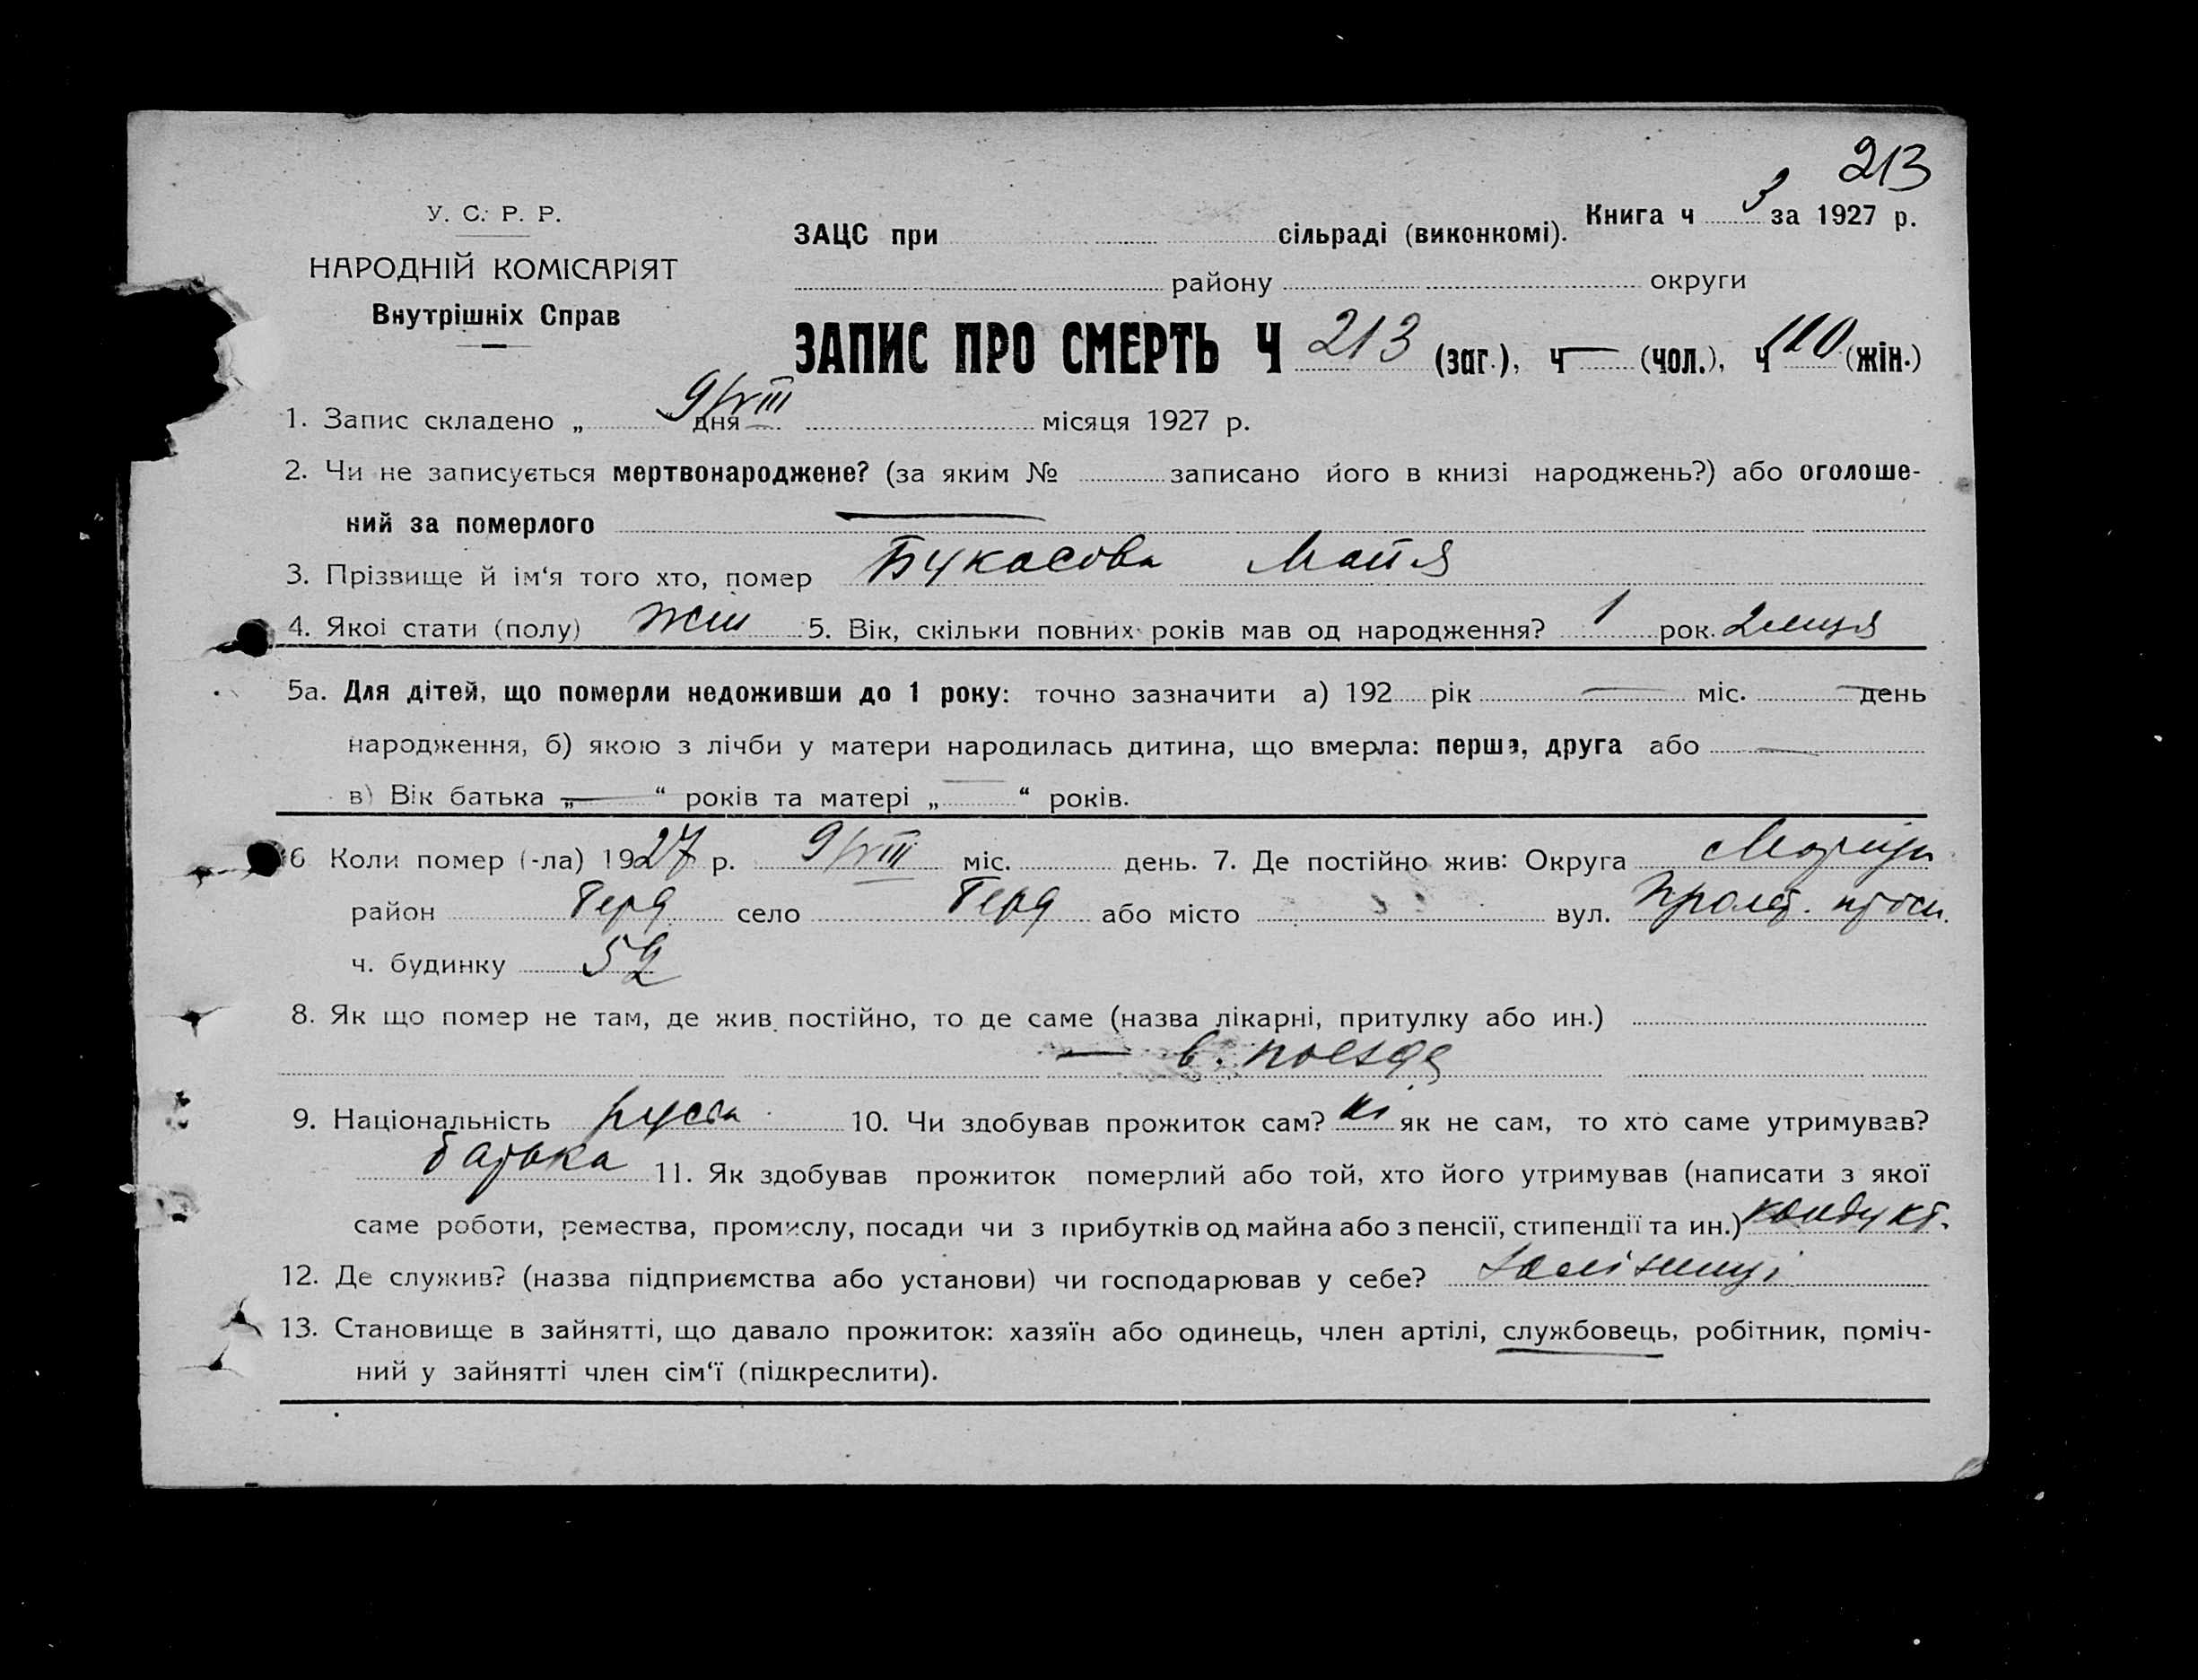 213
У. С. Р. Р.
НАРОДНІЙ КОМІСАРІЯТ
Внутрішніх Справ
Книга ч 3 за 1927 р.
ЗАЦС при сільраді (виконкомі).
району округи
ЗАПИС ПРО СМЕРТЬ Ч 213 (заг.), ч — (чол.), ч 110 (жін.)
1. Запис складено „ 9/VIII “ дня місяця 1927 р.
2. Чи не записується мертвонароджене? (за яким № записано його в книзі народжень?) або оголоше-
ний за померлого —
3. Прізвище й ім‘я того хто, помер Букасова Майя
4. Якої стати (полу) жін 5. Вік, скільки повних років мав од народження? 1 рок. 2 місця
5а. Для дітей, що померли недоживши до 1 року: точно зазначити а) 192 рік — міс. — день
народження, б) якою з лічби у матери народилась дитина, що вмерла: перша, друга або —
в) Вік батька „ — “ років та матері „ — “ років.
6 Коли помер (-ла) 1927 р. 9/VIII міс. день. 7. Де постійно жив: Округа
район село або місто вул. Пролет.
ч. будинку 52
8. Як що помер не там, де жив постійно, то де саме (назва лікарні, притулку або ин.)
— в поезде
9. Національність руська 10. Чи здобував прожиток сам? ні як не сам, то хто саме утримував?
батька 11. Як здобував прожиток померлий або той, хто його утримував (написати з якої
саме роботи, ремества, промислу, посади чи з прибутків од майна або з пенсії, стипендії та ин.) кондукт.
12. Де служив? (назва підприємства або установи) чи господарював у себе? Залізниці
13. Становище в зайнятті, що давало прожиток: хазяїн або одинець, член артілі, службовець, робітник, поміч-
ний у зайнятті член сім‘ї (підкреслити).